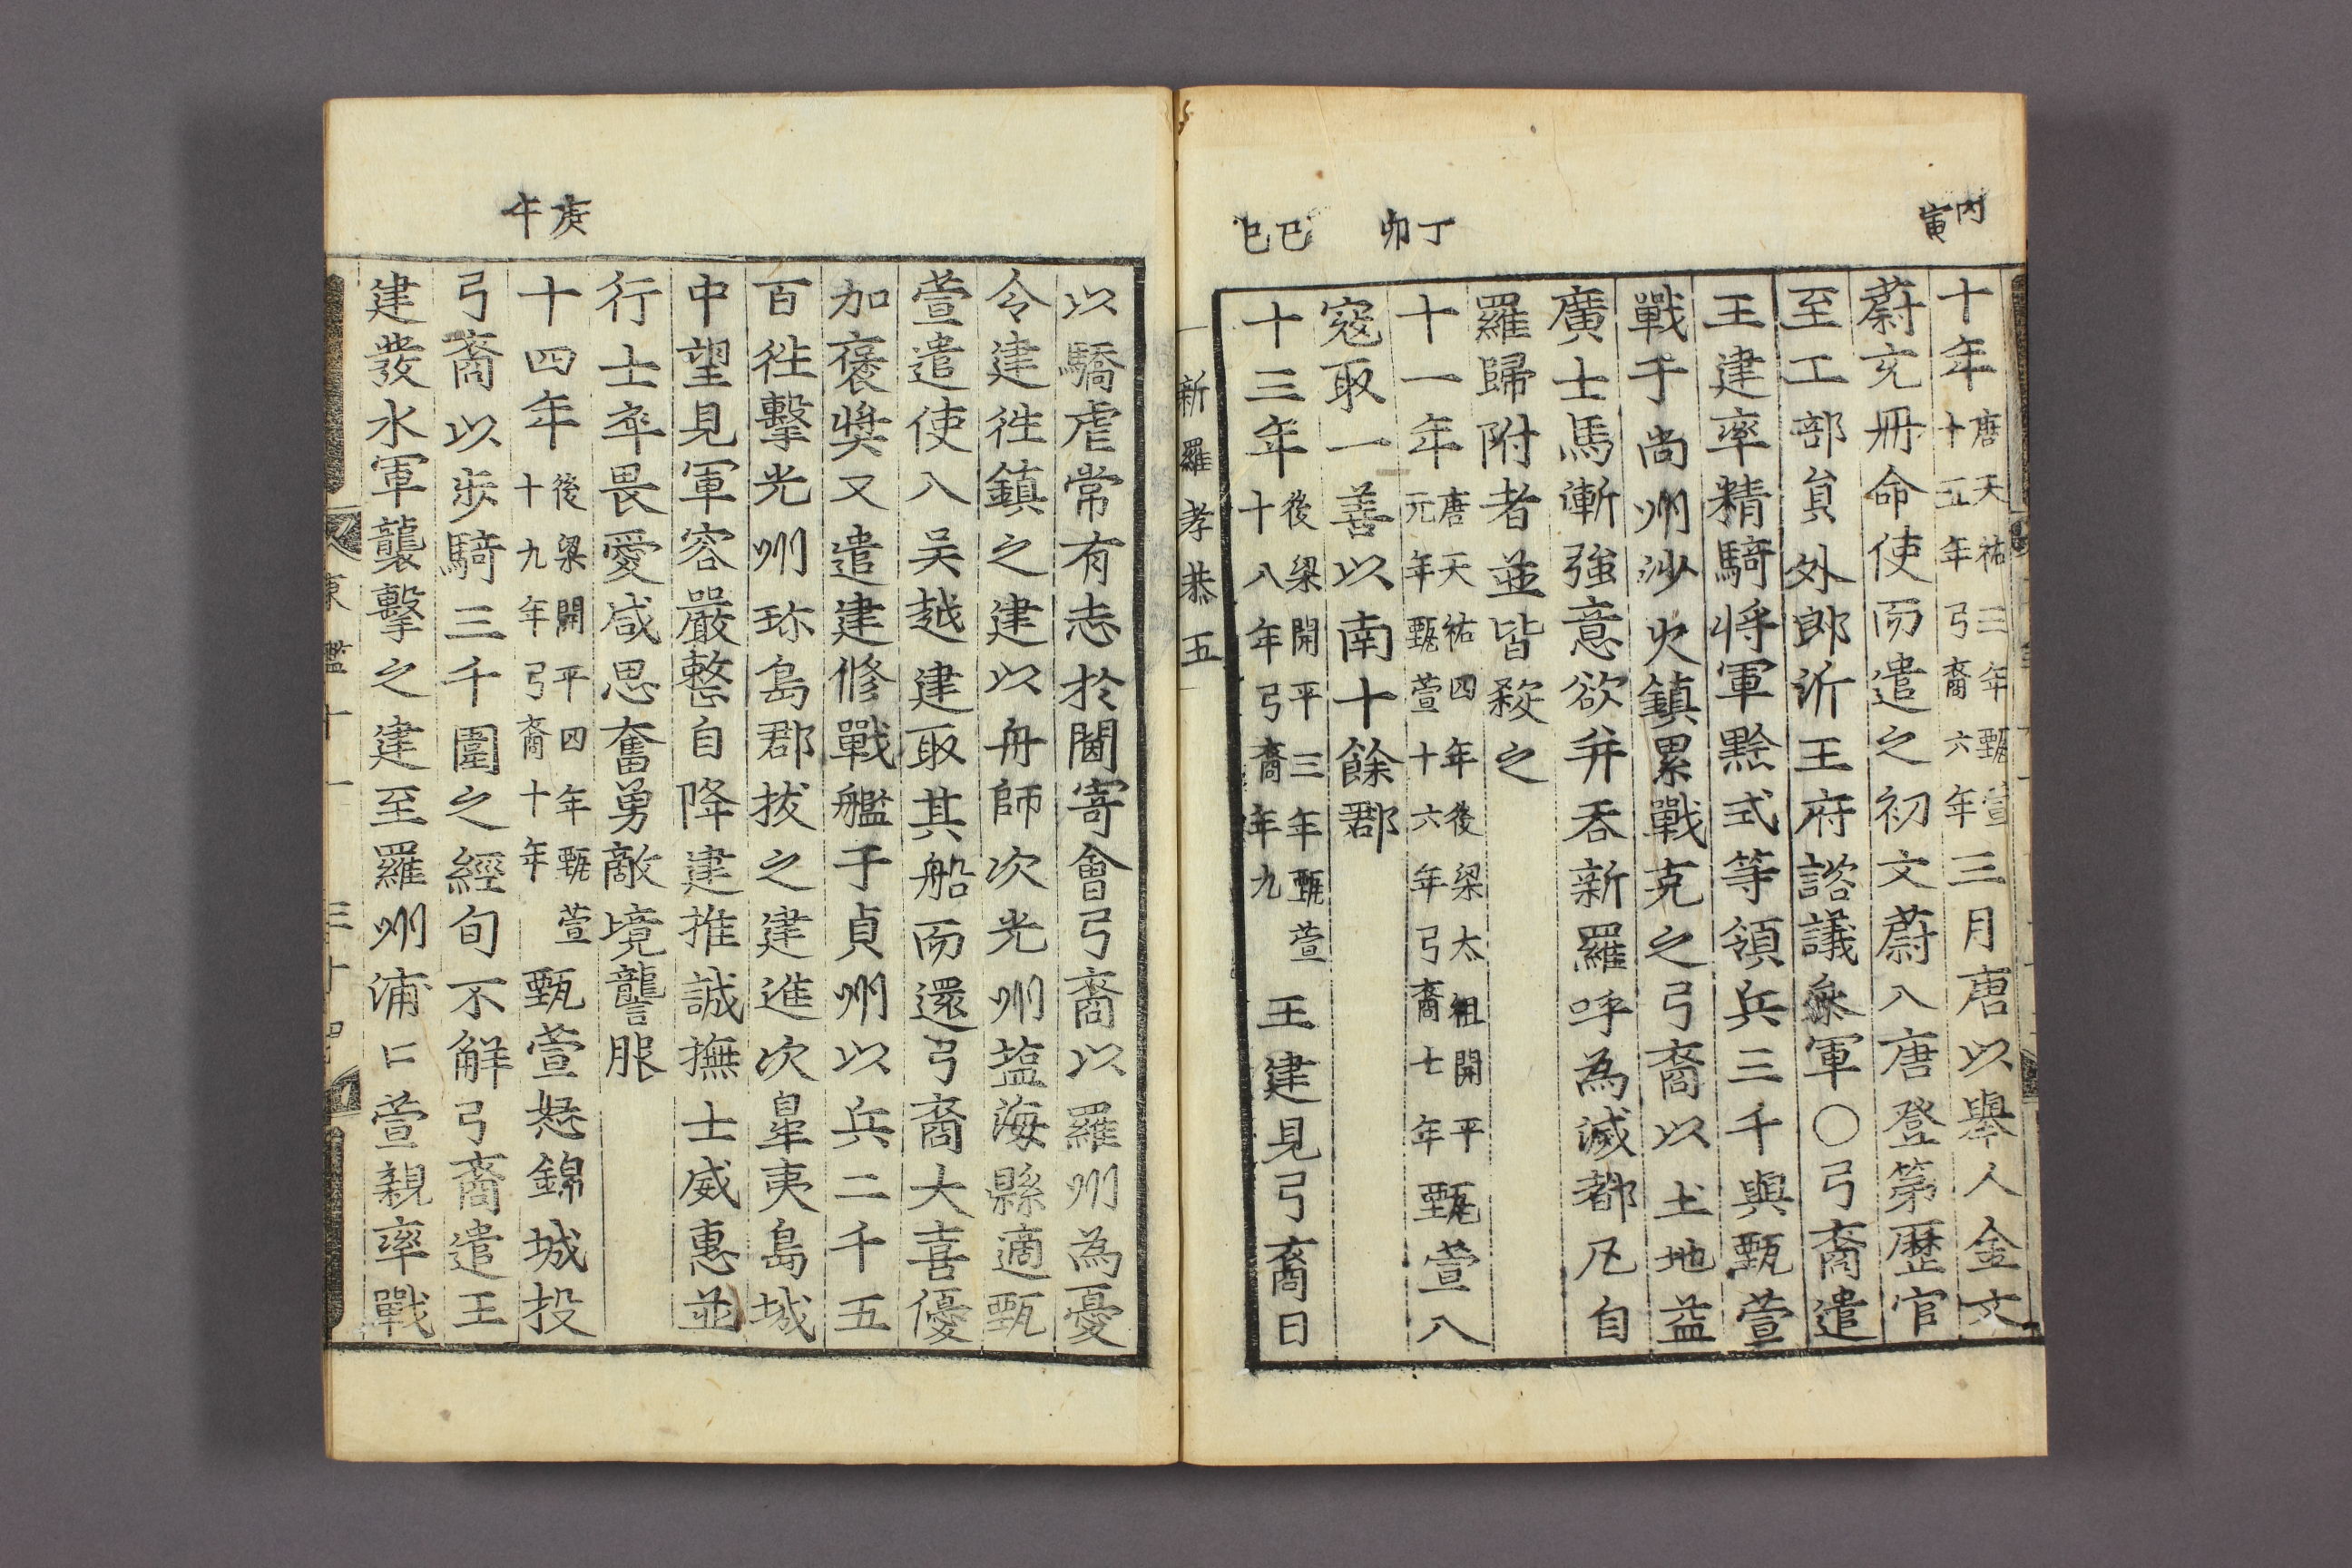 丙寅
十年唐天祐三年甄萱十五年弓裔六年三月唐以舉人金文
蔚充冊命使而遣之初文蔚入唐登第歷官
至工部貟外郎沂王府諮議叅軍○弓裔遣
王建率精騎將軍黙式等領兵三千與甄萱
戰于尚州沙火鎮累戰克之弓裔以土地益
廣士馬漸強意欲并吞新羅呼為滅都凡自
羅歸附者並皆殺之
丁卯
十一年唐天祐四年後梁太祖開平元年甄萱十六年弓裔七年甄萱入
寇取一善以南十餘郡
己巳
十三年後梁開平三年甄萱十八年弓裔年九王建見弓裔日
新羅孝恭五
以驕虐常有志於閫寄會弓裔以羅州為憂
令建徃鎮之建以舟師次光州塩海縣適甄
萱遣使入吴越建取其船而還弓裔大喜優
加褒奬又遣建修戰艦于貞州以兵二千五
百徃擊光州珎島郡拔之建進次皐夷島城
中望見軍容嚴整自降建推誠撫士威惠並
行士卒畏愛咸思奮勇敵境讋服
庚午
十四年後梁開平四年甄萱十九年弓裔十年甄萱怒錦城投
弓裔以步騎三千圍之經旬不解弓裔遣王
建發水軍襲擊之建至羅州浦口萱親率戰
東鑑十一 三十四